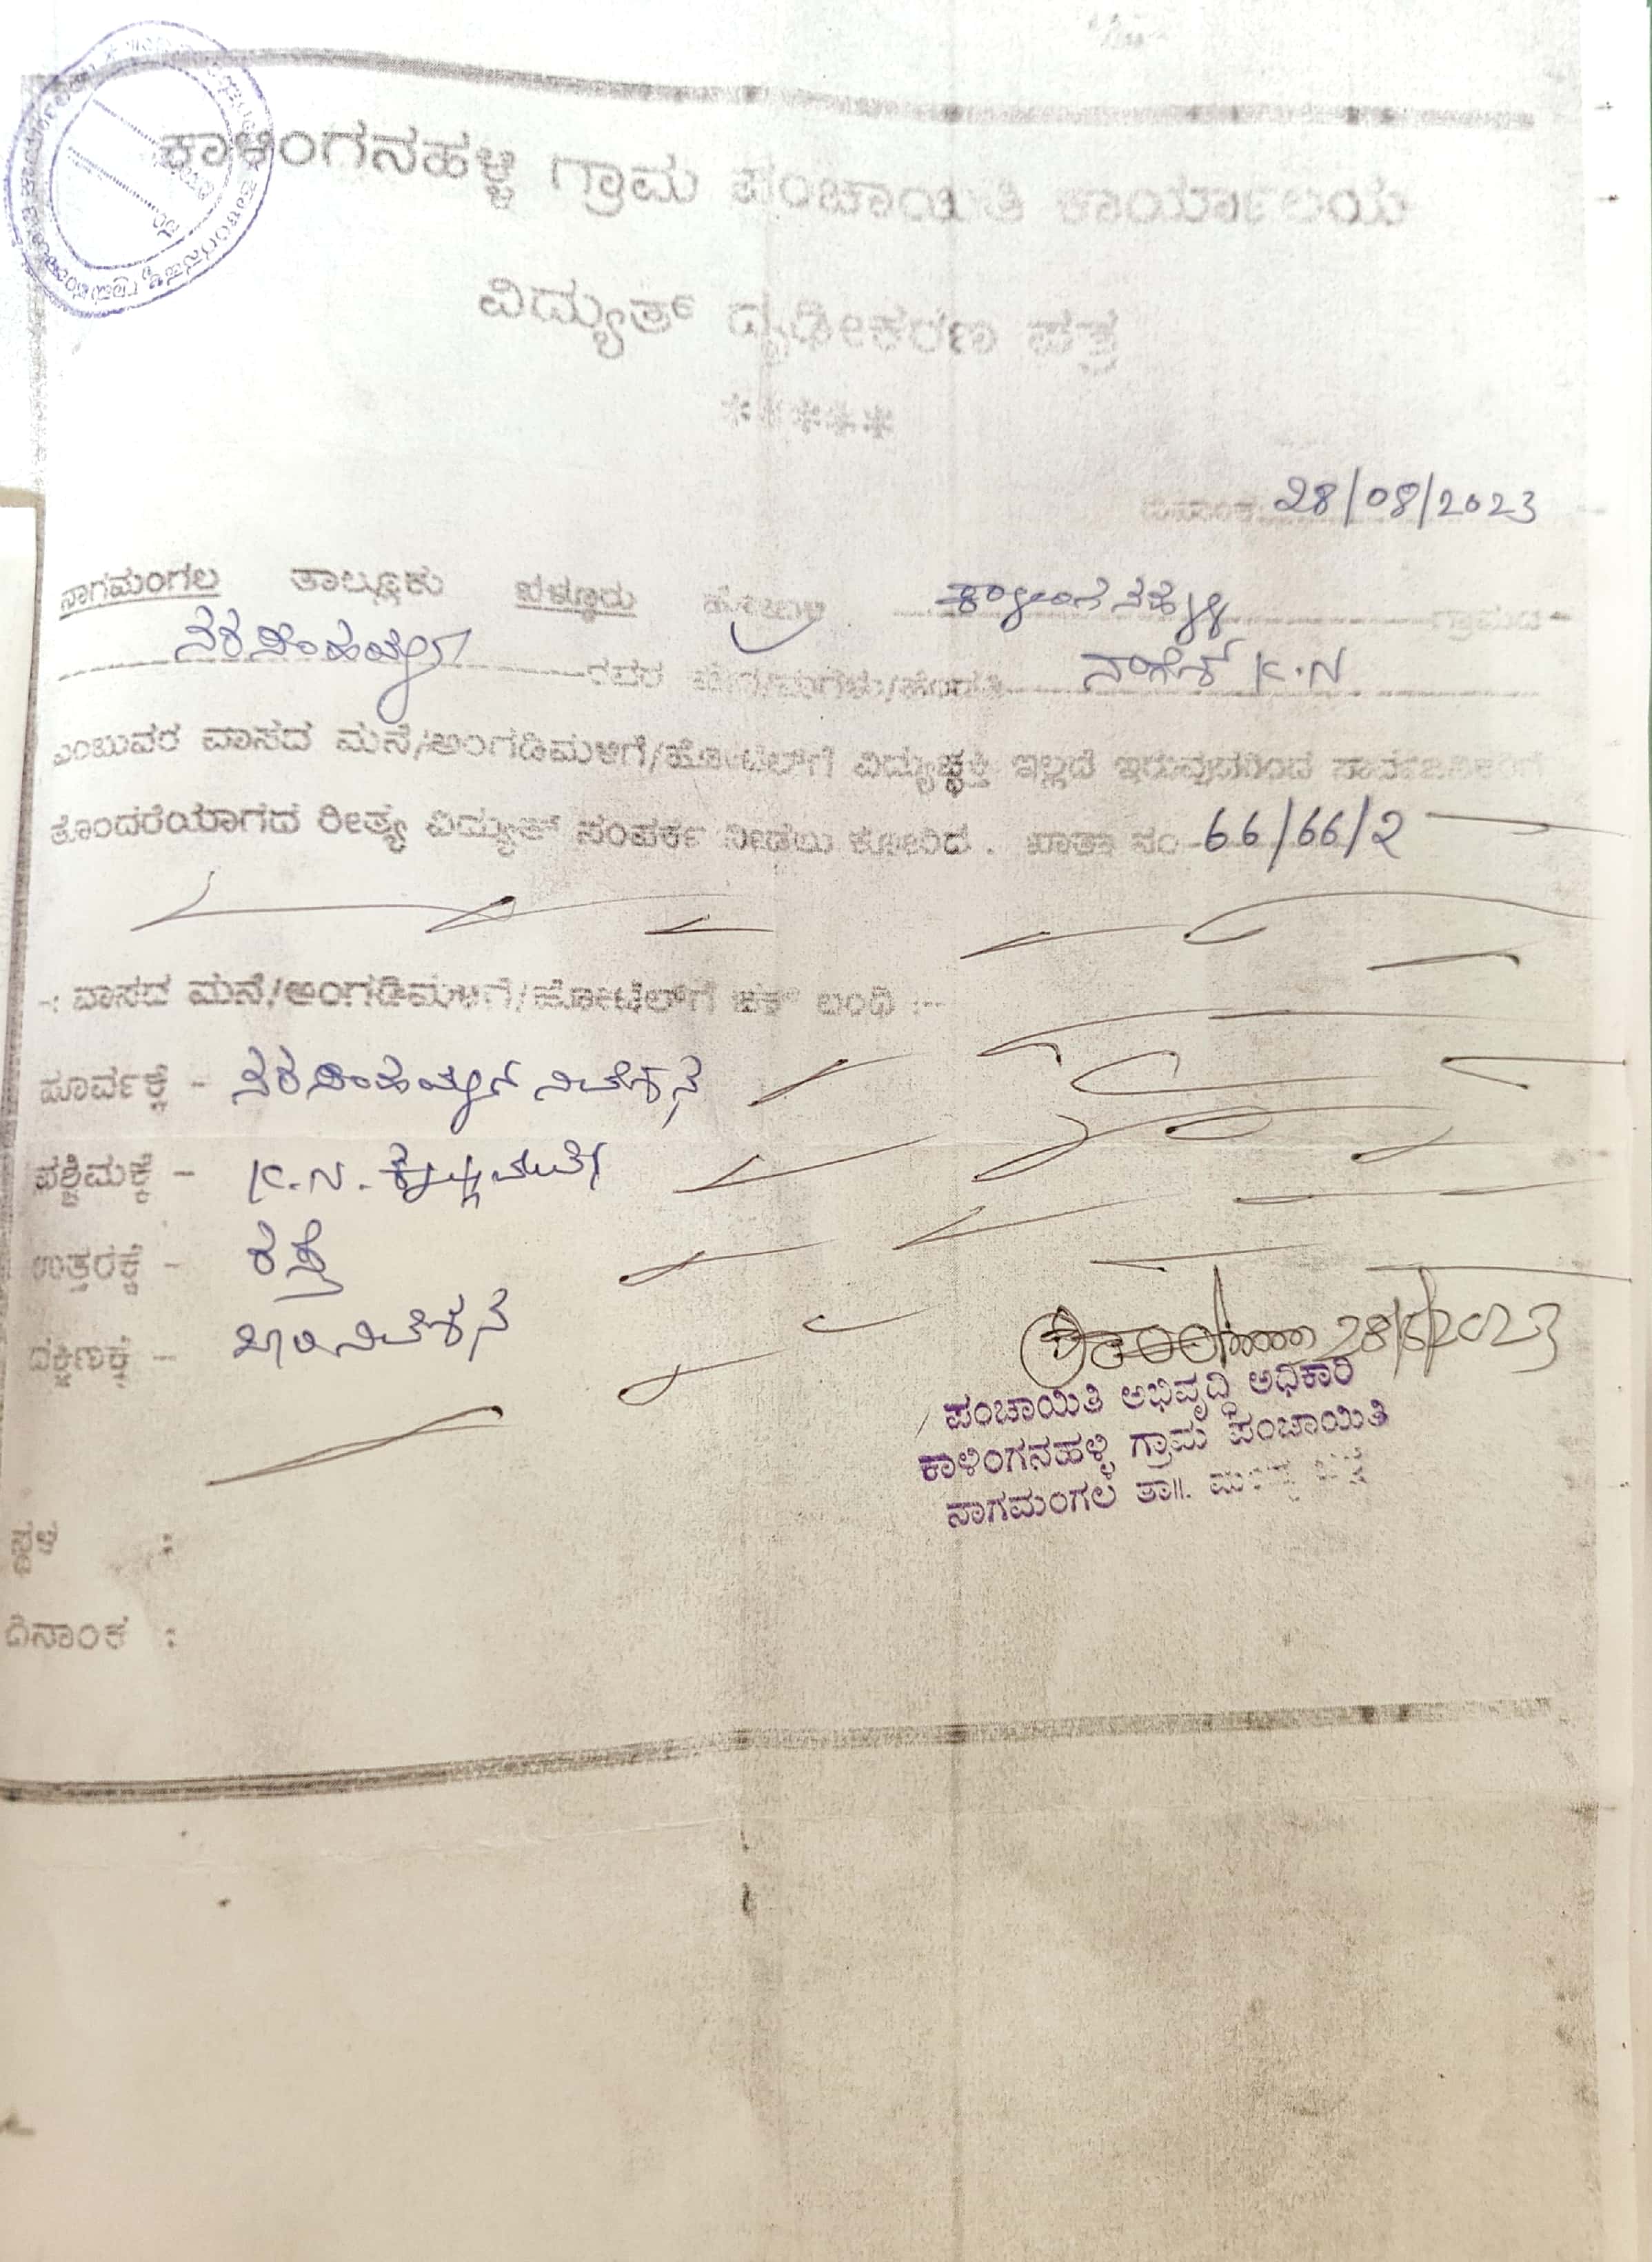 ಕಾಳಿಂಗನಹಳ್ಳಿ ಗ್ರಾಮ ಪಂಚಾಯಿತಿ ಕಾರ್ಯಾಲಯ
ವಿದ್ಯುತ್ ದೃಢೀಕರಣ ಪತ್ರ
*****
ದಿನಾಂಕ 28/08/2023
ನಾಗಮಂಗಲ ತಾಲ್ಲೂಕು ಬೆಳ್ಳೂರು ಹೋಬಳಿ ಕಾಳಿಂಗನಹಳ್ಳಿ ಗ್ರಾಮದ
ನರಸಿಂಹಯ್ಯ ರವರ ಮಗ/ಮಗಳು/ಹೆಂಡತಿ ನಾಗೇಶ್ K.N
ಎಂಬುವರ ವಾಸದ ಮನೆ/ಅಂಗಡಿಮಳಿಗೆ/ಹೋಟೆಲ್‌ಗೆ ವಿದ್ಯುಚ್ಛಕ್ತಿ ಇಲ್ಲದೆ ಇರುವುದರಿಂದ ಸಾರ್ವಜನಿಕರಿಗೆ
ತೊಂದರೆಯಾಗದ ರೀತ್ಯ ವಿದ್ಯುತ್ ಸಂಪರ್ಕ ನೀಡಲು ಕೋರಿದೆ . ಖಾತಾ ನಂ 66/66/2
-: ವಾಸದ ಮನೆ/ಅಂಗಡಿಮಳಿಗೆ/ಹೋಟೆಲ್‌ಗೆ ಚಕ್ ಬಂಧಿ :-
ಪೂರ್ವಕ್ಕೆ - ನರಸಿಂಹಯ್ಯನ ನಿವೇಶನ
ಪಶ್ಚಿಮಕ್ಕೆ - K.N.
ಉತ್ತರಕ್ಕೆ - ರಸ್ತೆ
ದಕ್ಷಿಣಕ್ಕೆ - ಖಾಲಿ ನಿವೇಶನ
28/8/2023
ಪಂಚಾಯಿತಿ ಅಭಿವೃದ್ಧಿ ಅಧಿಕಾರಿ
ಕಾಳಿಂಗನಹಳ್ಳಿ ಗ್ರಾಮ ಪಂಚಾಯಿತಿ
ನಾಗಮಂಗಲ ತಾ||.
ಸ್ಥಳ :
ದಿನಾಂಕ :